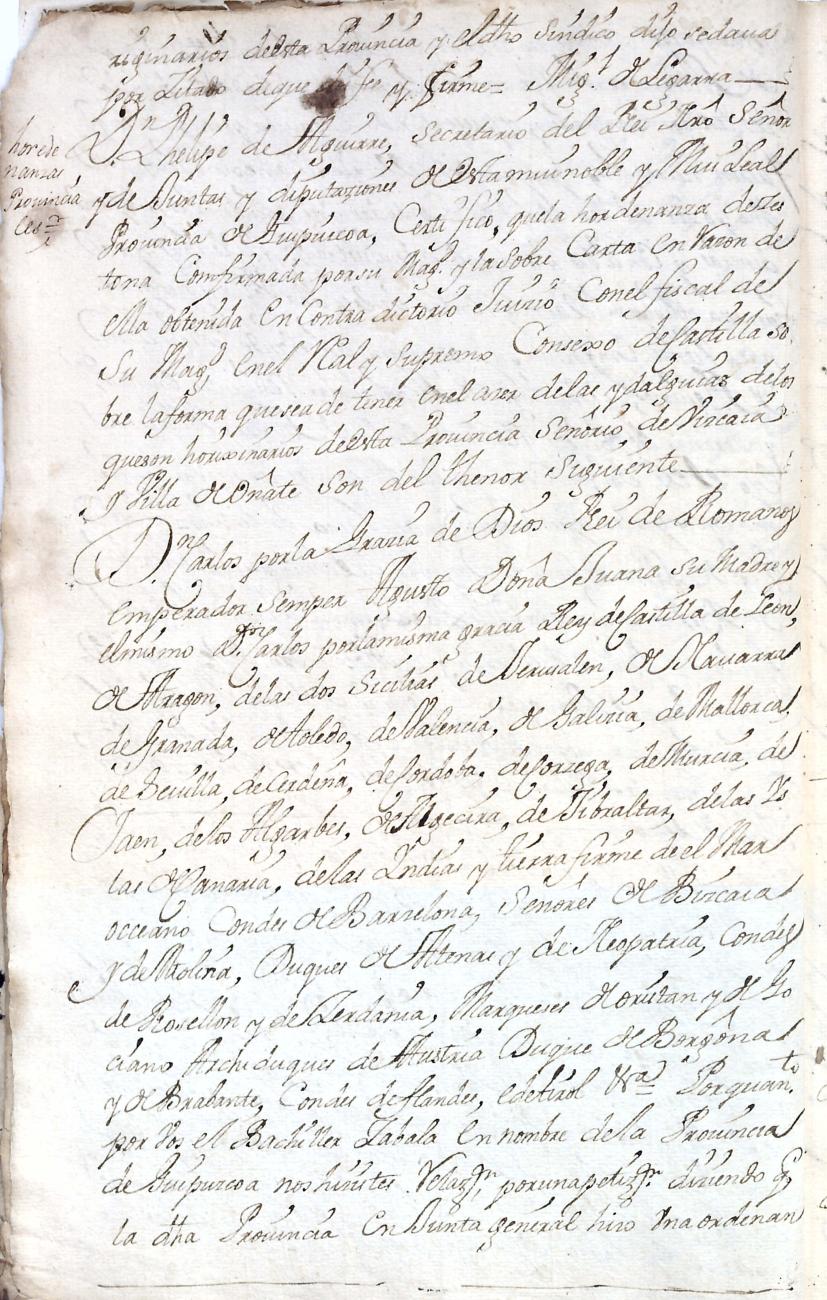 riginarios deesta Provincia y eldho sindico dijo sedava
por Zitado deque doi fee y firme= Mig.l de Legarra
horde
nanzas
Provincia
les
D.n Phelipe de Aguirre, secretario del Rei Nrô Señor
y de Juntas y diputaziones de esta mui noble y Mui Leal
Provincia de Guipuzcoa, Certifico, quela hordenanza dezes
tona Comfirmada por su Mag.d y la sobre Carta en Razon de
ella obtenida en Contradictorio Juizio Conel fiscal de
Su Mag.d enel Real y Supremo Consexo de Castilla so
bre la forma que sea de tener enel azer delas ydalguias delos
queson horixinarios deesta Provincia Señorio de Vizcaia
y Villa de Oñate son del thenor siguiente
D.n Carlos por la Grazia de Dios Rei de Romanos
emperador semper Agusto Doña Juana su Madre y
elmismo D.n Carlos porlamisma gracia Rey de Castilla de Leon,
de Aragon, delas dos Sicilias de Jerusalen, de Navarra
de Granada, de toledo, de Valencia, de Galizia, de Mallorca,
de Sevilla, de Cerdeña, de Cordoba, de Corzega, de Murcia, de
Jaen, delos Algarbes, de Algecira, de Gibraltar, delas Ys
las de Canaria, delas Yndias y tierra firme de el Mar
occeano Condes de Barzelona, Señores de Bizcaia
y de Molina, Duques de Atenas y de Neopatria, Condes
de Rosellon y de Zerdania, Marqueses de oristan y de Go
ciano Archiduques de Austria Duque de Borgoña
y de Brabante, Condes de flandes, e de tirol &a Porquan.to
por Vos el Bachiller Zabala en nombre de la Provincia
de Guipuzcoa nos hizistes Relaz.on por una petiz.on diziendo q
la dha Provincia en Junta general hizo Una ordenan